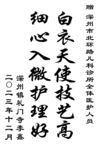 赠：深州市北环路儿科诊所全体医护人员
白衣天使技艺高
细心入微护理好
深州镇礼门寺李嘉
二〇二三年十二月